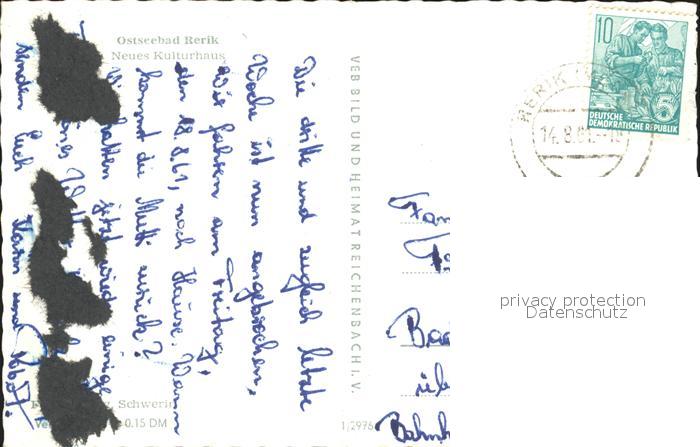 Ostseebad Rerik
Neues Kulturhaus
Die dritte und zugleich letzte
Woche ist nun angebrochen,
Wir fahren am Freitag,
den 18.8.61, nach Hause. Wann
kommt die Mutti zurück?
hatten jetzt wieder einige
senden Euch Karin und
VEB BILD UND HEIMAT REICHENBACH I. V.
Schwerin
0.15 DM
1/2976
10
DEUTSCHE
DEMOKRATISCHE REPUBLIK
RERIK
14.8.61
Fam
Bad
üb
Bahnh
privacy protection
Datenschutz